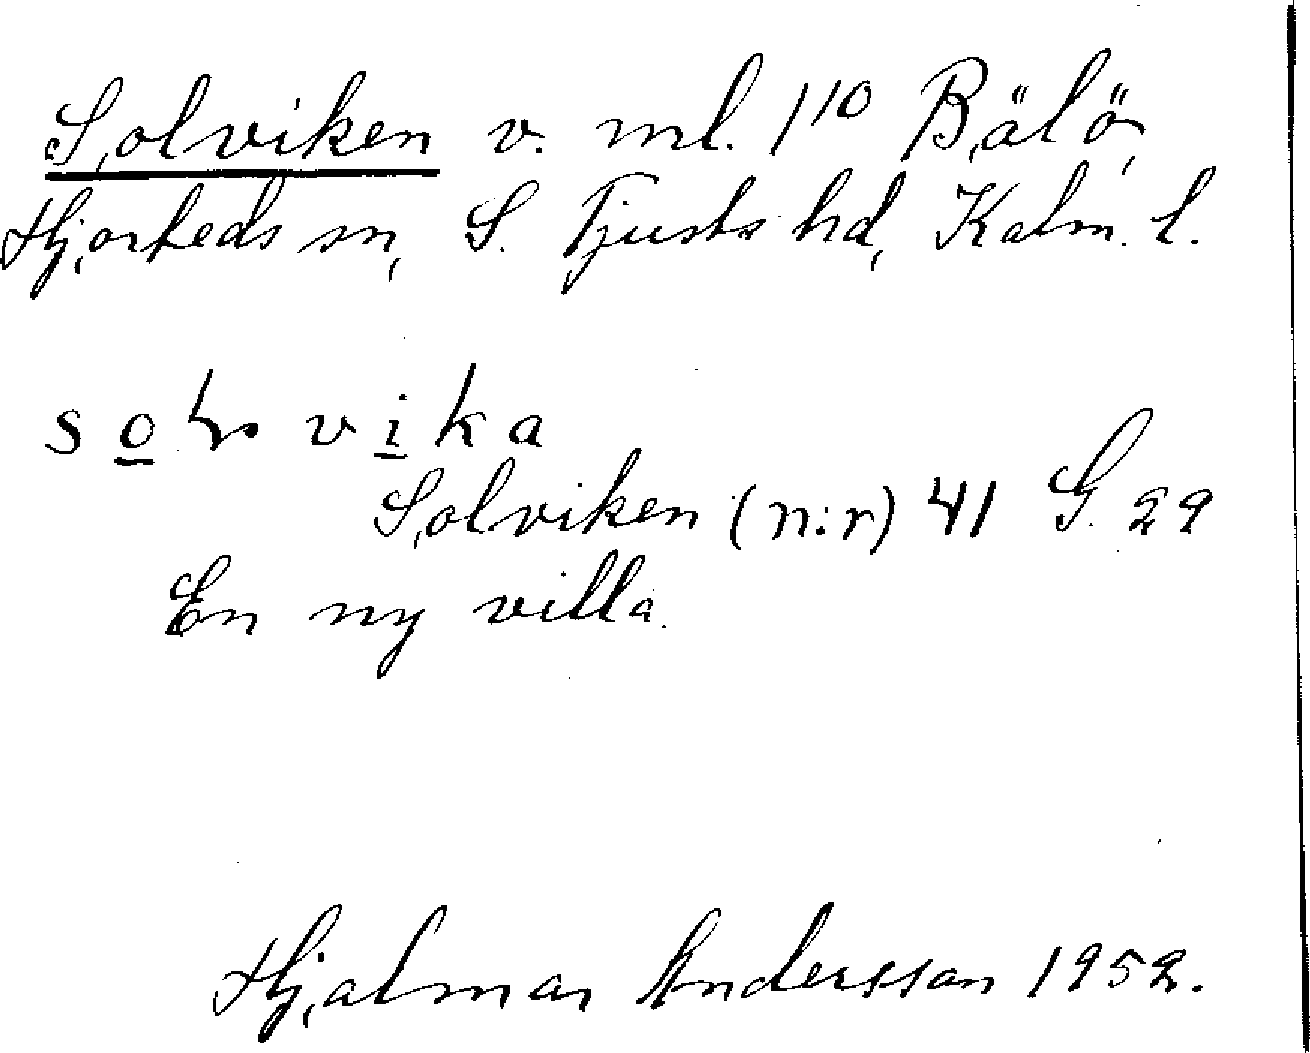 Solviken v. ml. 1¹⁰ Bälö,
Hjorteds sn, S. Tjusts hd, Kalm. l.
vika
Solviken (n:r) 41 G. 29
En ny villa.
Hjalmar Andersson 1952.